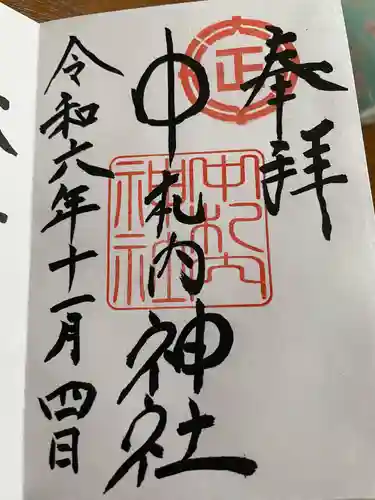 奉拝
中札内神社
令和六年十一月四日
正
中札内
神社